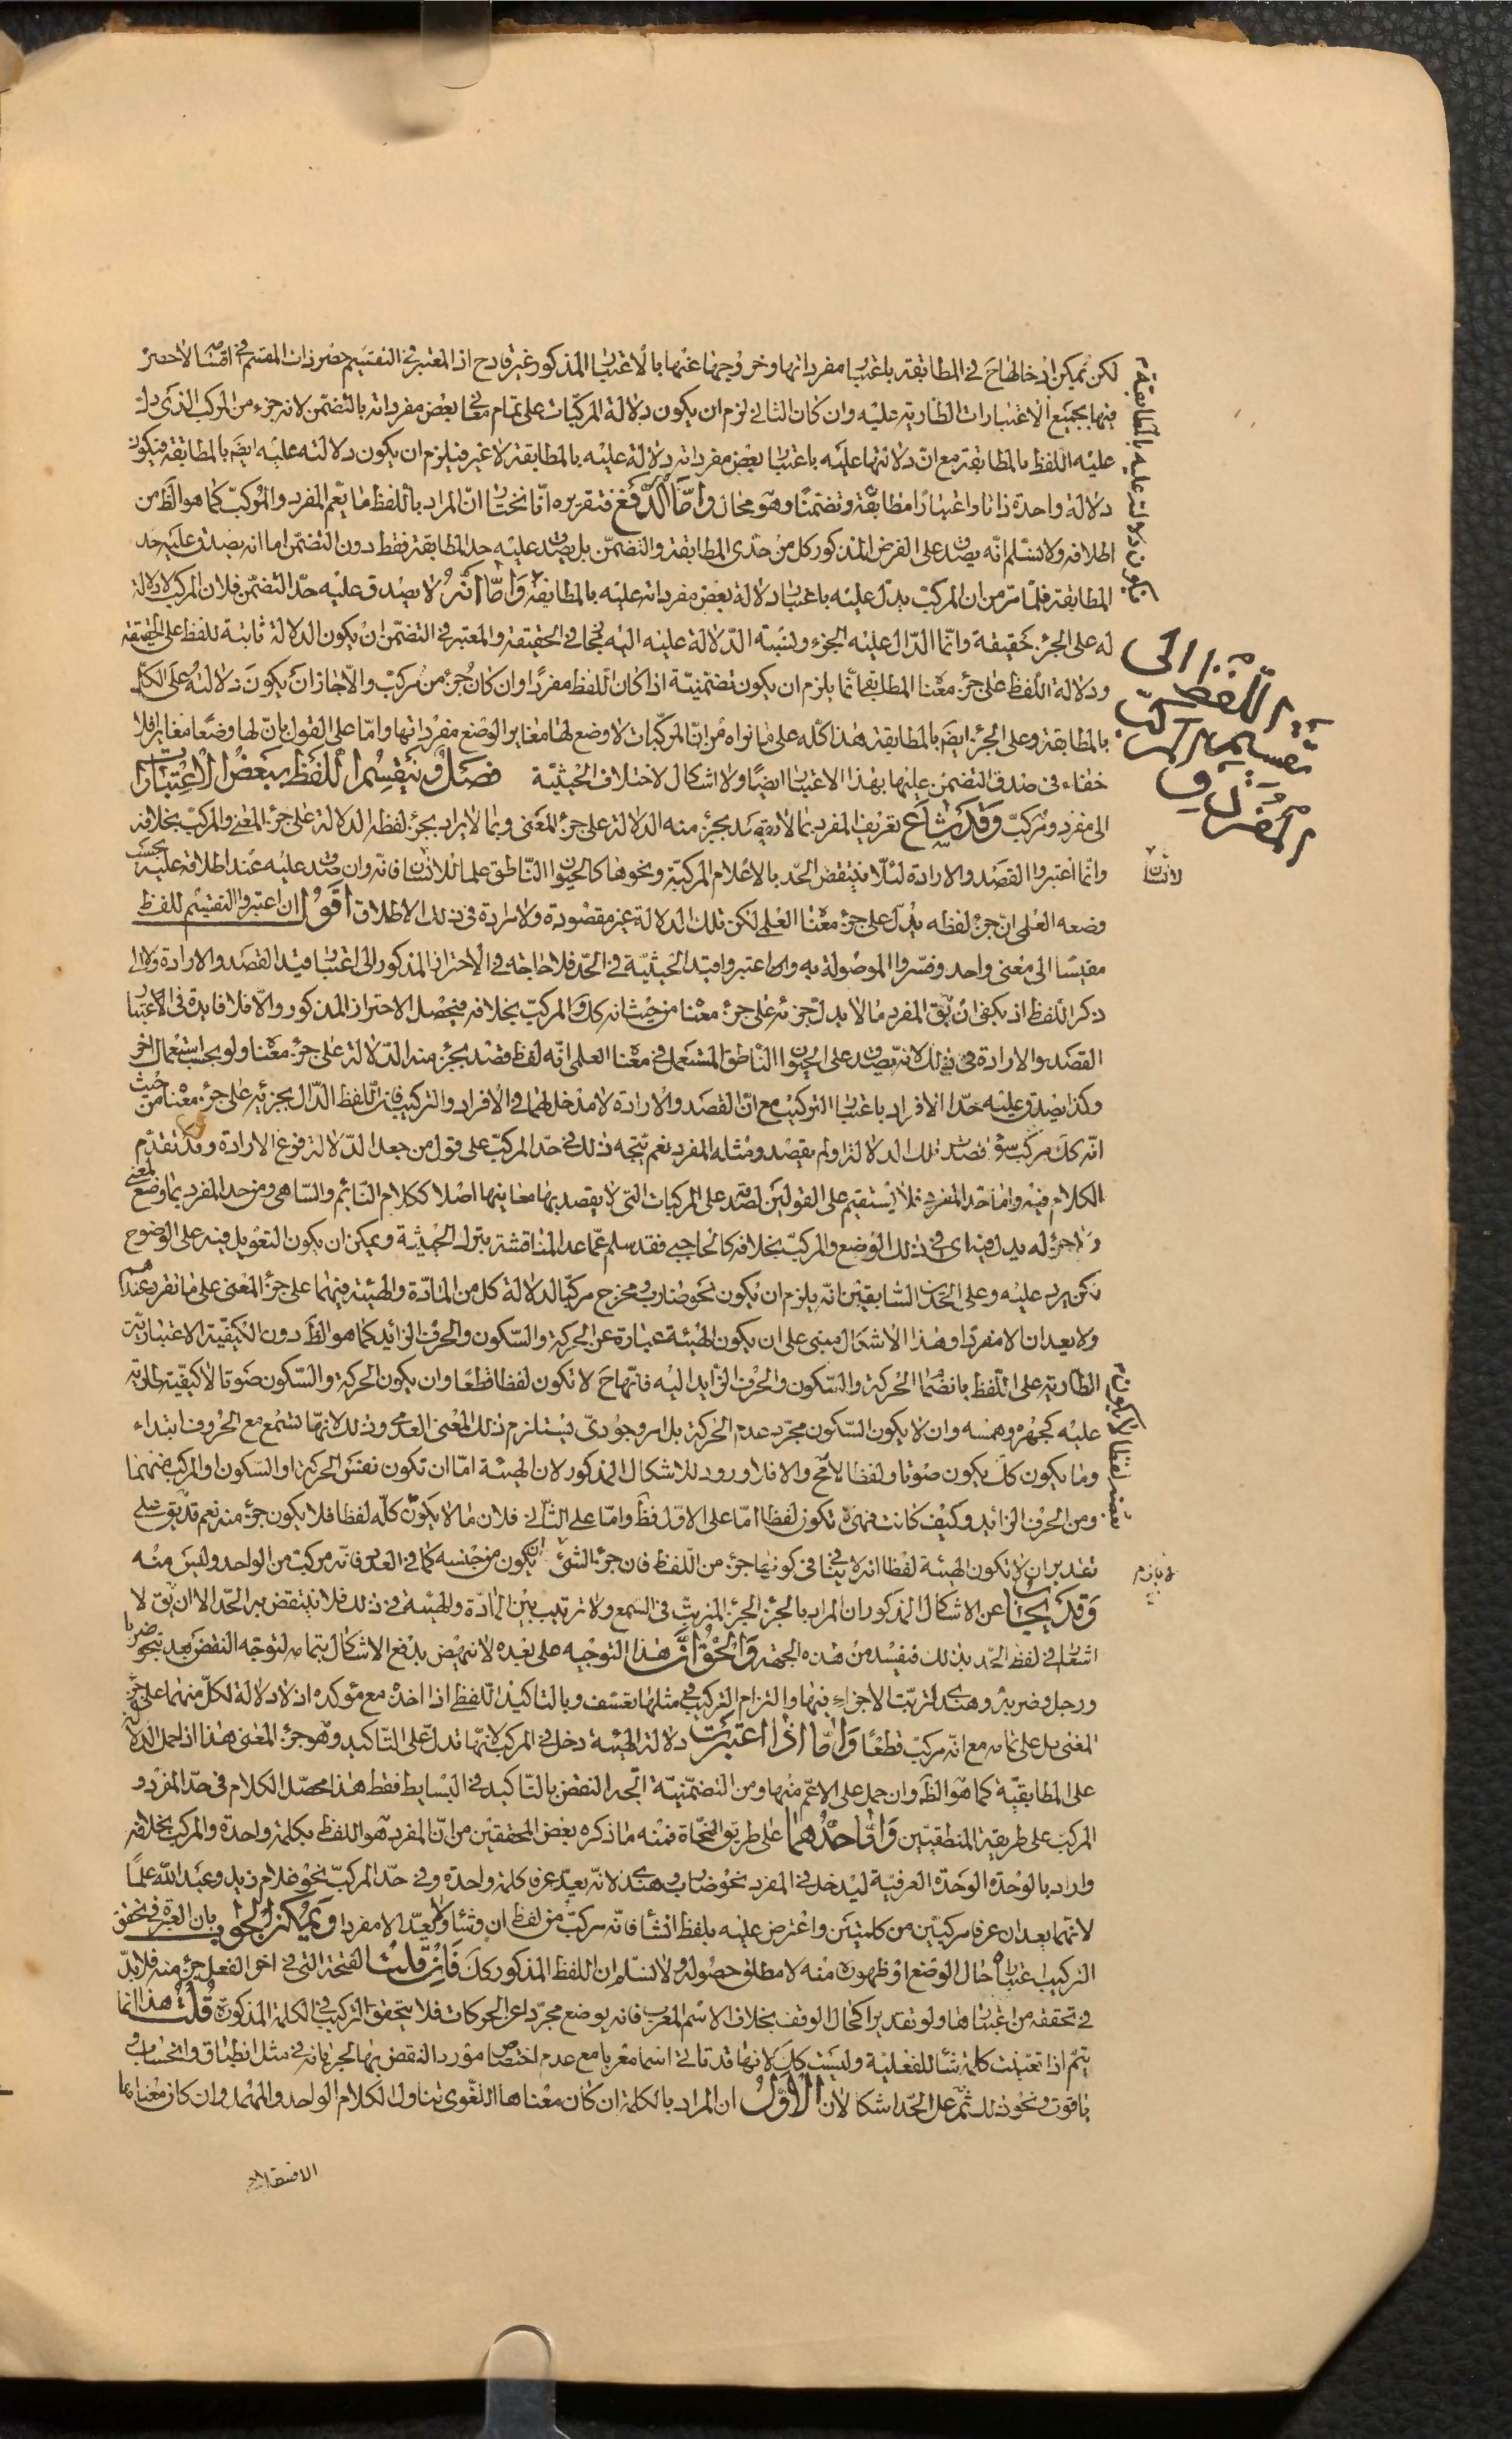 لكن يمكن ادخالها ح في المطابقة باعتبار مفرداتها وخروجها عنها بالاعتبار المذكور غير قادح اذ المعتبر في التقسيم حصر ذات المقسم في اقسامه لا حصره
فيها بجميع الاعتبارات الطارية عليه وان كان الثاني لزم ان يكون دلالة المركبات على تمام معاني بعض مفرداته بالتضمن لانه جزء من المركب الذي دل
عليه اللفظ بالمطابقة مع ان دلالتها عليه باعتبار بعض مفرداته دلالة عليه بالمطابقة لا غير فيلزم ان يكون دلالته عليه ايضَ بالمطابقة فيكون
دلالة واحدة ذاتا واعتبارا مطابقة وتضمنا وهو محال وامّا الدّفع فتقريره انّا نختار انّ المراد باللفظ ما يعم المفرد والمركبّ كما هو الظَ من
اطلاقه ولا نسلم انّه يصدق على الفرض المذكور كل من حدّى المطابقة والتضمّن بل يصدق عليه حد المطابقة فقط دون التضمّن اما انه يصدق عليه حد
المطابقة فلما مرّ من ان المركبّ يدلّ عليه باعتبار دلالة بعض مفرداته عليه بالمطابقة وَامّا انّهُ لا يصدق عليه حدّ التضمّن فلان المركب لا دلالة
له على الجزء حقيقة وانّما الدّال عليه الجزء ونسبة الدّلالة عليه اليه مجاز في الحقيقة والمعتبر في التضمّن ان يكون الدلالة ثابتة للفظ على الحقيقة
ودلالة اللّفظ على جزء معناه المطابقي انّما يلزم ان يكون تضمنيّة اذا كان اللّفظ مفردًا وان كان جزء من مركبّ والّا جاز ان يكون دلالته على الكل
بالمطابقة وعلى الجزء ايضَ بالمطابقة هذا كلّه على ما نراه من انّ المركّبات لا وضع لها مغاير الوضع مفرداتها وامّا على القول بانّ لها وضعًا مغايرا فلا
خفاء في صدق التضمّن عليها بهذا الاعتبار ايضًا ولا اشكال لاختلاف الحيثيّة فصلٌ وينقسم اللّفظ ببعض الاعتبارات
الى مفرد ومُركبّ وَقَد شاعَ تعريف المفرد بما لا يقصد بجزء منه الدلالة على جزء المعنى وبما لا يراد بجزء لفظه الدلالة على جزء المعنى والمركبّ بخلافه
وانّما اعتبروا القصد والارادة لئلّا ينتقض الحّد بالاعلام المركبّة ونحوها كالحيوان الناطق علما للانسان فانّه وان صدق عليه عند اطلاقه عليه بحسب
وضعه العلمي انّ جزء لفظه يدلّ على جزء معناه العلمي لكن تلك الدلالة غير مقصودة ولا مرادة في ذلك الاطلاق اقولُ ان اعتبروا التقسيم للفظ
مقيسا الى معنى واحد وفسّروا الموصولة به واعتبروا قيد الحيثيّة في الحّد فلا حاجة في الاحتراز المذكور الى اعتبار قيد القصد والارادة ولا الى
ذكر اللّفظ اذ يكفى ان يقَ المفرد ما لا يدلّ جزئه على جزء معناه من حيث انه كذلك والمركبّ بخلافه فيحصل الاحتراز المذكور والّا فلا فايدة في الاعتبار
القصد والارادة في ذلك لانّه يصدق على الحيوان النّاطق المستعمل في معناه العلمي انّه لفظ قصد بجزء منه الدّلالة على جزء معناه ولو بحسب استعمال اخر
وكذا يصدق عليه حدّا الافراد باعتبار التركيب مع انّ القصد والارادة لا مدخل لهما في الافراد والتركيب فان اللّفظ الدّال بجزئه على جزء معناه من حيث
انّه ككَ مركبّ سواء قصدت تلك الدلالة او لم يقصد ومثله المفرد نعم يتّجه ذلك في حدّ المركبّ على قول من جعل الدّلالة فرع الارادة وقد تقدّم
الكلام فيه وامّا حدّ المفرد فلا يستقيم على القولين لصدقه على المركبات التي لا يقصد بها معانيها اصلا ككلام النّايم والسّاهي ومن حد المفرد بما وضع لمعنى
ولا جزء له يدل فيه اى في ذلك الوضع والمركبّ بخلافه كالحاجبي فقد سلم عمّا عدا المناقشة بترك الحيثية ويمكن ان يكون التعويل فيه على الوضوح
لكن يرد عليه وعلى الحدّين السّابقين انّه يلزم ان يكون نحو ضارب ومخرج مركبّا لدلالة كل من المادّة والهيئة فيهما على جزء المعنى على ما تقرر عندهم
ولا يعدان الا مفردا وهذا الاشكال مبنى على ان يكون الهيئة عبارة عن الحركة والسّكون والحرف الزائد كما هو الظَ دون الكيفيّة الاعتباريّة
الطارية على اللّفظ بانضمام الحركة والسّكون والحرف الزّايد اليه فانّهاحَ لا تكون لفظا قطعًا وان يكون الحركة والسّكون صوتا لا كيفيّة طارية
عليه كجهره وهمسه وان لا يكون السّكون مجرّد عدم الحركة بل امر وجوديّ يستلزم ذلك المعنى العدمي وذلك لانّهما تسمع مع الحروف ابتداء
وما يكون ككَ يكون صوتا ولفظا لا مح والا فلا ورود للاشكال المذكور لان الهيئة امّا ان تكون نفس الحركة او السّكون او المركب منهما
ومن الحرف الزائد وكيف كانت فهي لا تكون لفظا امّا على الاوّل فظَ وامّا على الثّاني فلان ما لا يكون كلّه لفظا فلا يكون جزء منه نعم قد يقَ على
تقدير ان لا تكون الهيئة لفظا انه لا ينافى كونها جزء من اللّفظ فان جزء الشئ لا يلزم ان يكون من جنسه كما في العدد فانّه مركبّ من الواحد وليس منه
وَقَد يجابُ عن الاشكال المذكور ان المراد بالجزء الجزء المترتبّ في السمع ولا ترتيب بين المادّة والهيئة في ذلك فلا ينتقض به الحّد الا ان يقَ لا
اشعار في لفظ الحّد بذلك فيفسد من هذه الجهة وَالحَقُّ انّ هذا التوجيه على بعده لا ينهض بدفع الاشكال بتمامه لتوجّه النقض بعد بنحو ضربا
ورجل وضربه وهندى لترتبّ الاجزاء فيها والتزام التركيب في مثلها تعسّف وبالتاكيد اللّفظى اذا اخذ مع مؤكده اذ لا دلالة لكلّ منهما على جزء
المعنى بل على تمامه مع انّه مركبّ قطعًا وَامّا اذا اعتبرت دلالة الهيئة دخل في المركبّ لانّها تدلّ على التاكيد وهو جزء المعنى هذا اذا حمل الدلالة
على المطابقيّة كما هو الظَ وان حمل على الاعمّ منها ومن التضمّنيّة اتّجه النقض بالتّاكيد في البسايط فقط هذا محصّل الكلام في حدّ المفرد و
المركبّ على طريقة المنطقيّين وَامّا حدّهما على طريق النّحاة فمنه ما ذكره بعض المحققين من انّ المفرد هو اللفظ بكلمة واحدة والمركبّ بخلافه
واراد بالوحدة الوحدة العرفيّة ليدخل في المفرد نحو ضارب وهندى لانّه يعدّ عرفا كلمة واحدة وفي حدّ المركبّ نحو غلام زيد وعبد الله علمًا
لانّهما يعدان عرفا مركبّين من كلمتين واعترض عليه بلفظ انشأ فانّه مركبّ من لفظ ان وشأ ولا يعدّ الا مفردا وَيمكن الجوابُ بان العبرة في تحقق
التركيب اعتباره حال الوضع او ظهوره منه لا مطلق حصوله ولا نسلم ان اللفظ المذكور ككَ فَانْ قلتَ الفتحة التي في اخر الفعل جزء منه فلا بدّ
في تحققه من اعتبارها ولو تقديرا كحال الوقف بخلاف الاسم المعرب فانه يوضع مجرّدا عن الحركات فلا يتحقق التركيب في الكلمة المذكورة قلتُ هذا انّما
يتمّ اذا تعيّنت كلمة شأ للفعلية وليست ككَ لانها قد تاتى اسما معربا مع عدم اختصاص مورد النقض بها لجريانه في مثل انطباق وانحساب و
ياقوت ونحو ذلك ثمّ على الحّد اشكالان الاوّلُ ان المراد بالكلمة ان كان معناها اللّغوى تناول الكلام الواحد والمهمل وان كان معناها
تقسيم اللّفظ الى
المفرد والمركبّ